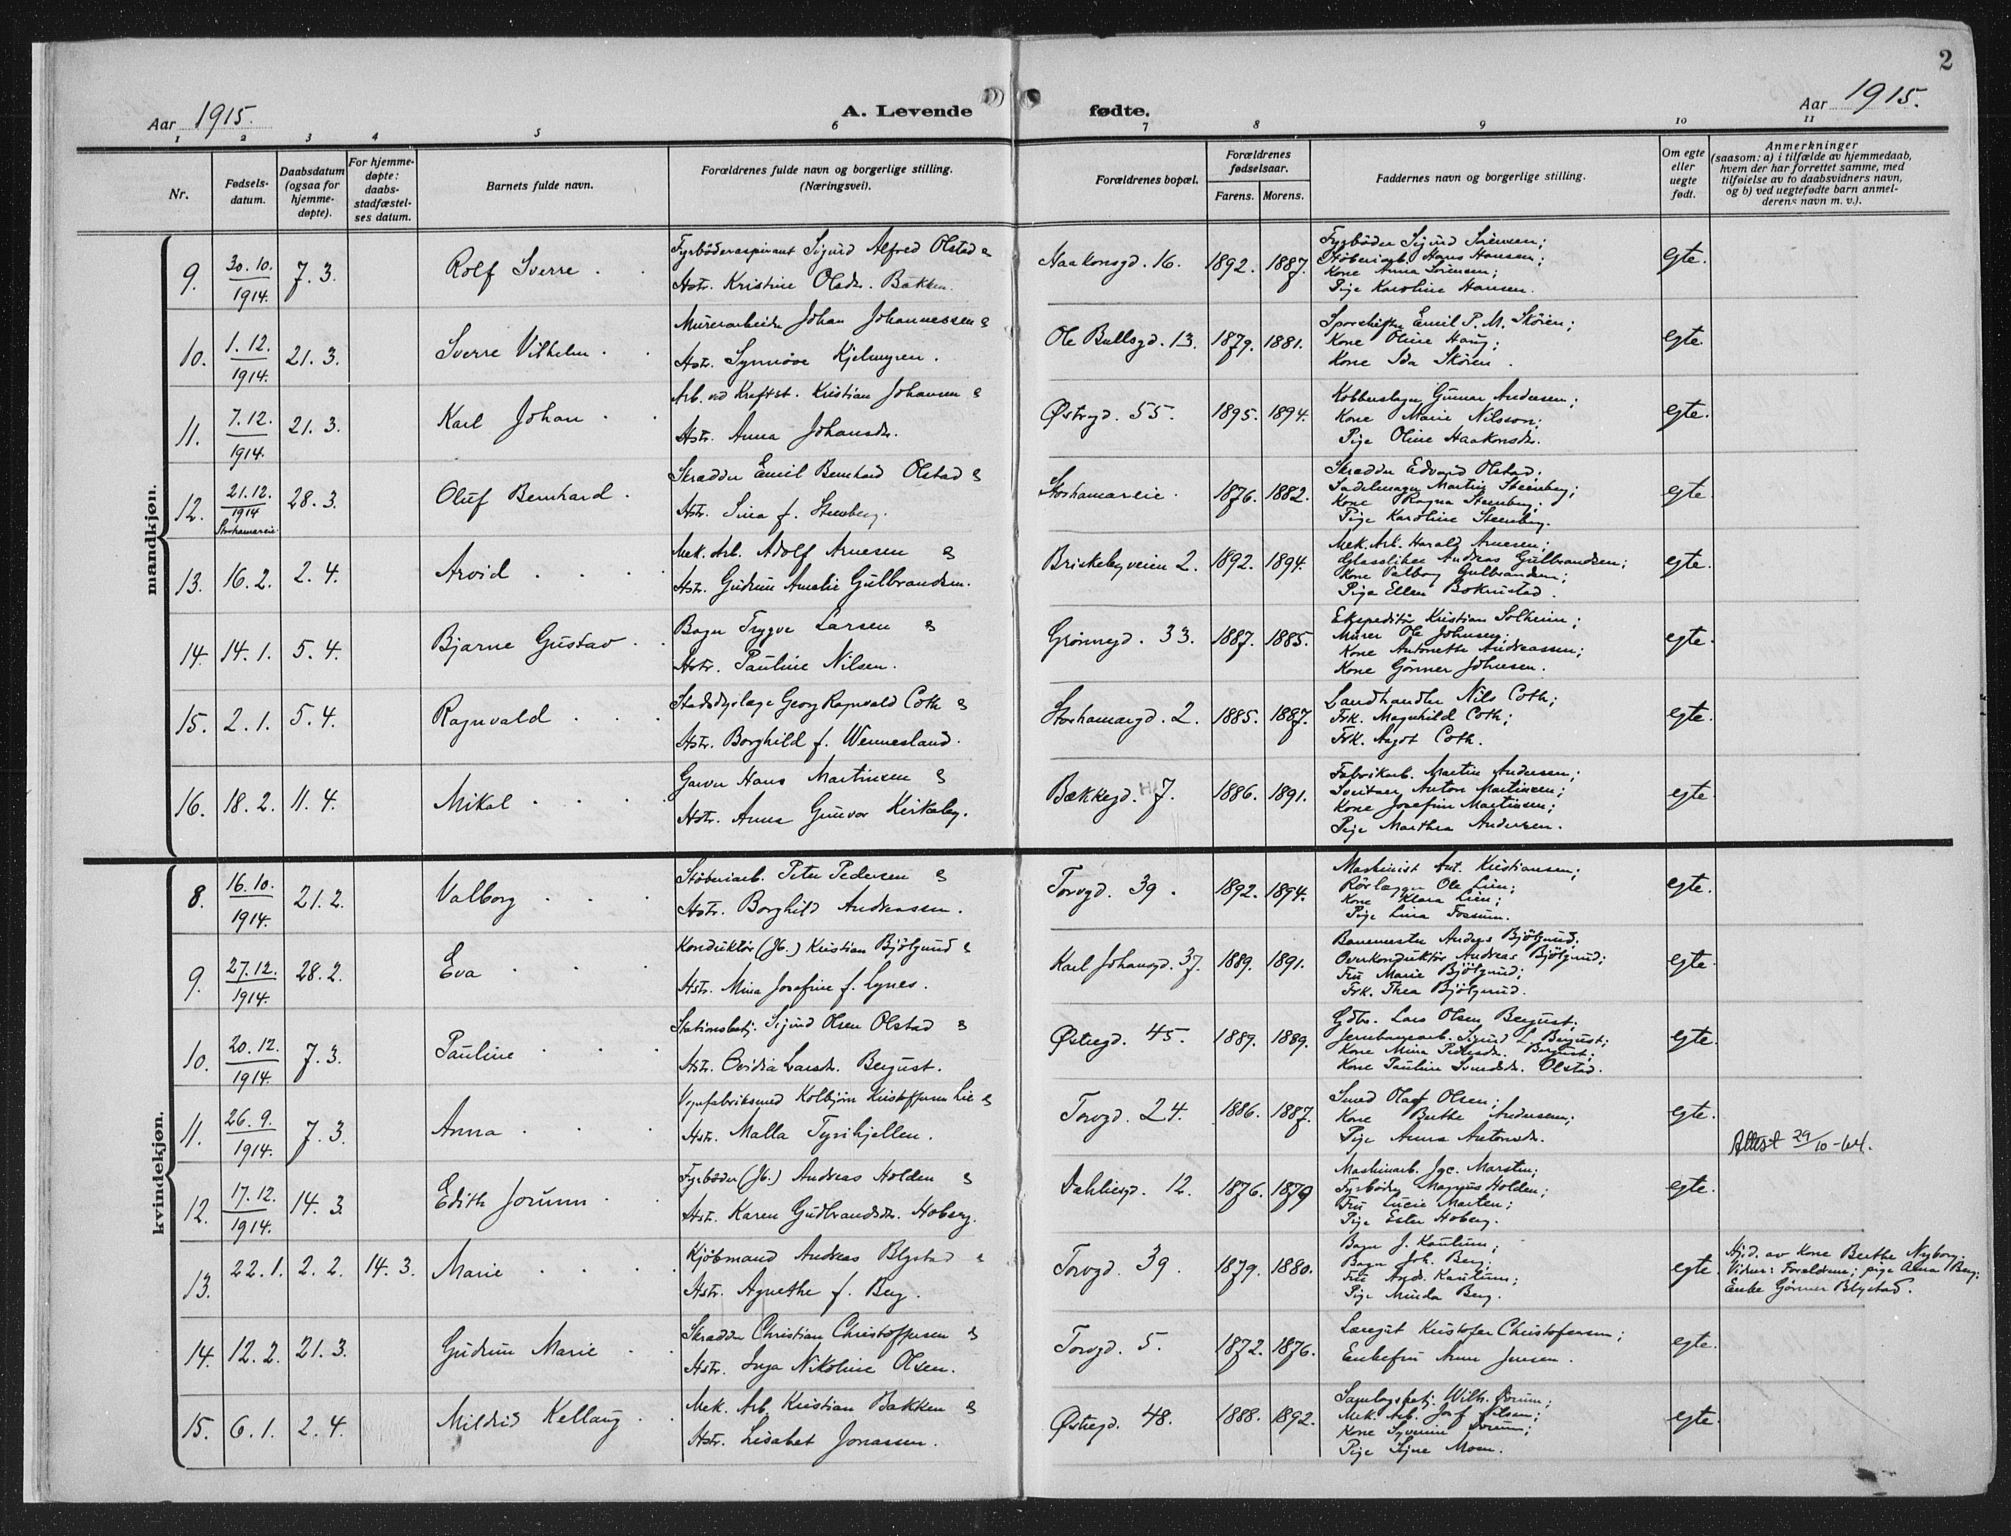 2
Aar 1915.
A. Levende fødte.
Aar 1915.
1 2 3 4 5 6 7 8 9 10 11
Nr.
Fødsels-
datum.
Daabsdatum
(ogsaa for
hjemme-
døpte).
For hjemme-
døpte:
daabs-
stadfæstel-
ses datum.
Barnets fulde navn.
Forældrenes fulde navn og borgerlige stilling.
(Næringsvei).
Forældrenes bopæl.
Forældrenes
fødselsaar.
Farens. Morens.
Faddernes navn og borgerlige stilling.
Om egte
eller
uegte
født.
Anmerkninger
(saasom: a) i tilfælde av hjemmedaab,
hvem der har forrettet samme, med
tilføielse av to daabsvidners navn,
og b) ved uegtefødte barn anmel-
derens navn m. v.).
mandkjøn.
9. 30.10. 1914. 7.3. Rolf Sverre
Fyrbøderaspirant Sigurd Alfred Olstad &
Hstr. Kristine Olsdr. Bakken.
Haakonsgd. 16. 1892. 1887.
Fyrbøder Sigurd Sörensen;
Støberiarb. Hans Hansen;
Kone Anna Sörensen;
Pige Karoline Hansen.
egte.
10. 1.12. 1914. 21.3. Sverre Vilhelm
Murerarbeider Johan Johannessen &
Hstr. Synnöve Kjelmyren.
Ole Bullsgd. 13. 1879. 1881.
Sporskifter Emil P. M. Skören;
Kone Oline Haug;
Kone Ida Skören.
egte.
11. 7.12. 1914. 21.3. Karl Johan
Arb. ved Kraftst. Kristian Johansen &
Hstr. Anna Johansdr.
Østregd. 55. 1895. 1894.
Kobberslager Gunnar Andersen;
Kone Marie Nilsson;
Pige Oline Haakonsdr.
egte.
12. 21.12. 1914 Storhamareie 28.3. Oluf Bernhard
Skrædder Emil Bernhard Olstad &
Hstr. Sina f. Steenberg.
Storhamareie. 1876. 1882.
Skrædder Edvard Olstad;
Sadelmager Martin Steenberg;
Kone Ragna Steenberg;
Pige Karoline Steenberg.
egte.
13. 16.2. 2.4. Arvid
Mek. Arb. Adolf Arnesen &
Hstr. Gudrun Amalie Gulbrandsen.
Briskebyveien 2. 1892. 1894.
Mek. Arb. Harald Arnesen;
Glassliper Andreas Gulbrandsen;
Kone Valborg Gulbrandsen;
Pige Ellen Boknestad.
egte.
14. 14.1. 5.4. Bjarne Gustav
Bager Trygve Larsen &
Hstr. Pauline Nilsen.
Grönnegd. 33. 1887. 1885.
Ekspeditör Kristian Solheim;
Murer Ole Johnsen;
Kone Antonette Andreassen;
Kone Gönner Johnsen.
egte.
15. 2.1. 5.4. Ragnvald
Stadsdyrlæge Georg Ragnvald Coth &
Hstr. Borghild f. Wennesland.
Storhamargd. 2. 1885. 1887.
Landhandler Nils Coth;
Frk. Magnhild Coth;
Frk. Aagot Coth.
egte.
16. 18.2. 11.4. Mikal
Garver Hans Martinsen &
Hstr. Anna Gunvor Kirkeby.
Bækkegd. 7. 1886. 1891.
Fabrikarb. Martin Andersen;
Sveitser Anton Martinsen;
Kone Josefine Martinsen;
Pige Marthea Andersen.
egte.
kvindekjøn.
8. 16.10. 1914. 21.2. Valborg
Støberiarb. Peter Pedersen &
Hstr. Borghild Andreassen.
Torvgd. 39. 1892. 1894.
Maskinist Ant. Kristiansen;
Rörlægger Ole Lien;
Kone Klara Lien;
Pige Lina Fossum.
egte.
9. 27.12. 1914. 28.2. Eva
Konduktör (Jb.) Kristian Bjölgerud &
Hstr. Mina Josefine f. Lynes.
Karl Johansgd. 37. 1889. 1891.
Banemester Anders Bjölgerud;
Overkonduktör Andreas Bjölgerud;
Fru Marie Bjölgerud;
Frk. Thea Bjölgerud.
egte.
10. 20.12. 1914. 7.3. Pauline
Stationsbetj. Sigurd Olsen Olstad &
Hstr. Ovidia Larsdr. Bergust.
Østregd. 45. 1889. 1889.
Gdbr. Lars Olsen Bergust;
Jernbanearb. Sigurd L. Bergust;
Kone Mina Pedersdr. Bergust;
Kone Pauline Svendsdr. Olstad.
egte.
11. 26.9. 1914. 7.3. Anna
Vognfabriksmed Kolbjörn Kristoffersen Lie &
Hstr. Malla Tyrihjellen.
Torvgd. 24. 1886. 1887.
Smed Olaf Olsen;
Kone Berthe Andersen;
Pige Anna Antonsdr.
egte.
Attest 29/10-64.
12. 17.12. 1914. 14.3. Edith Jorunn
Fyrbøder (Jb.) Andreas Holden &
Hstr. Karen Gudbrandsdr. Hoberg.
Dahliesgd. 12. 1876. 1879
Maskinarb. Jac. Marsten;
Fyrbøder Magnus Holden;
Fru Lucie Marten;
Pige Ester Hoberg.
egte.
13. 22.1. 2.2. 14.3. Marie
Kjöbmand Andreas Blystad &
Hstr. Agnethe f. Berg.
Torvgd. 39. 1879. 1880.
Bager J. Kautum;
Bager Joh. Berg;
Fru And. Kautum;
Pige Minda Berg.
egte.
Hjd. av Kone Berthe Nyborg.
Vidner: Forældrene; pige Anna Berg;
Enke Gönner Blystad.
14. 12.2. 21.3. Gudrun Marie
Skrædder Christian Christoffersen &
Hstr. Inga Nikoline Olsen.
Torvgd. 5. 1872. 1876.
Læregut Kristofer Christofersen;
Enkefru Anna Jensen.
egte.
15. 6.1. 2.4. Mildrid Kellaug
Mek. Arb. Kristian Bakken &
Hstr. Lisabet Jonassen.
Østregd. 48. 1888. 1892.
Samlagsbetj. Wilh. Sorum;
Mek. Arb. Josef Nilsen;
Kone Syverine Sorum;
Pige Signe Moen.
egte.